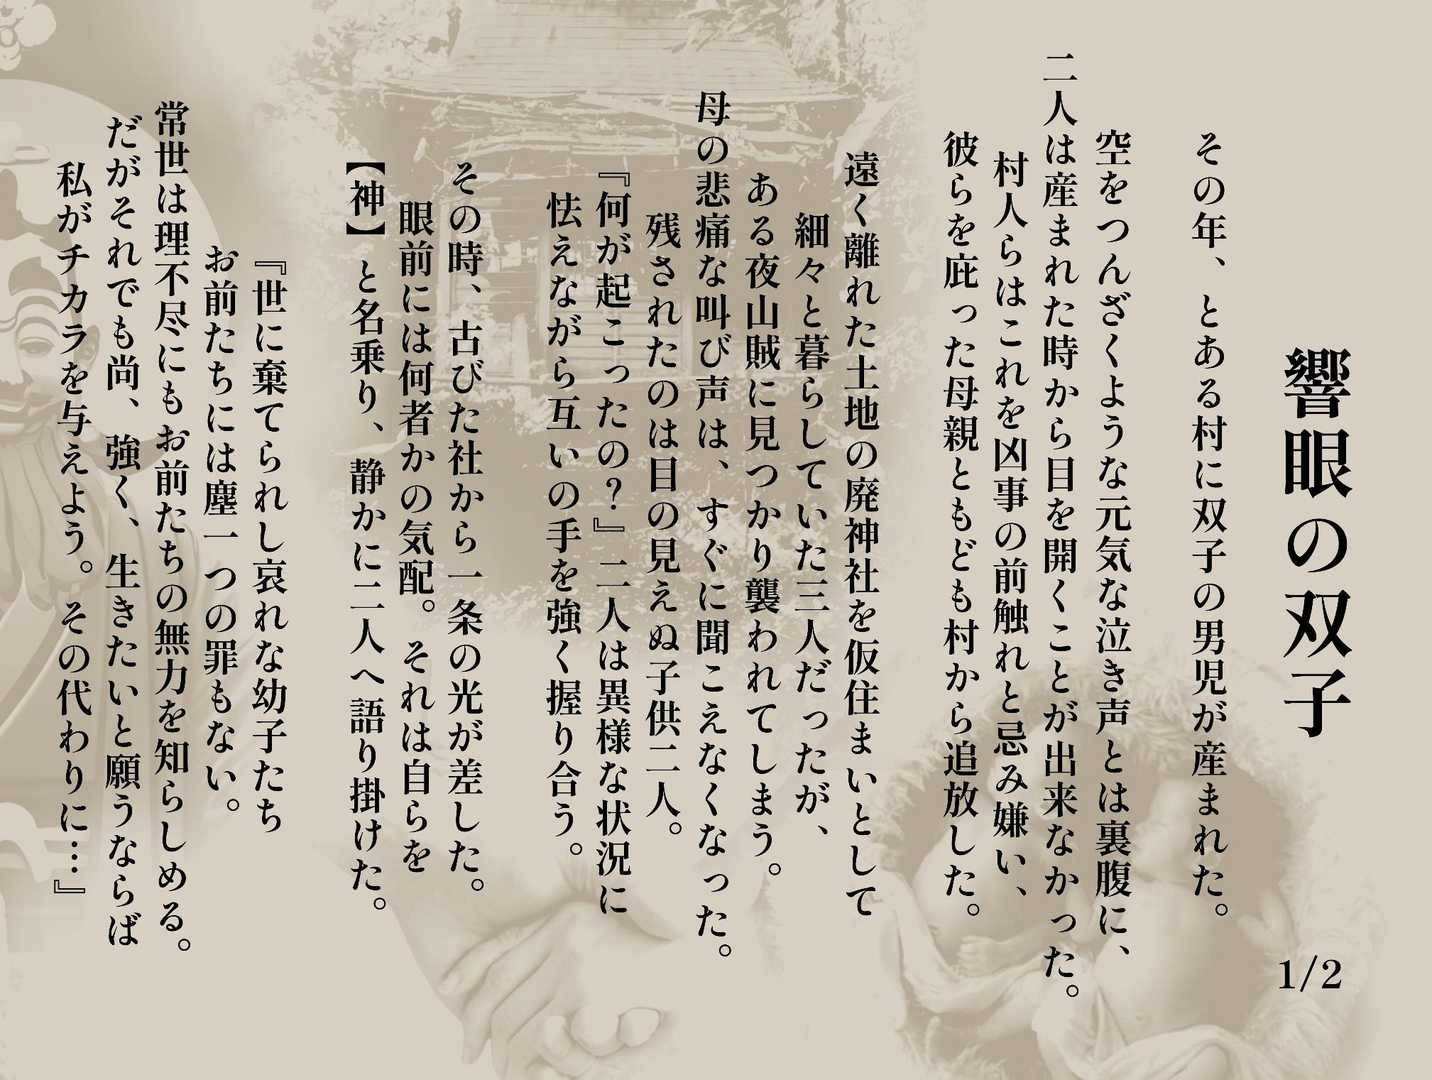 響眼の双子
1/2
その年、とある村に双子の男児が産まれた。
空をつんざくような元気な泣き声とは裏腹に、
二人は産まれた時から目を開くことが出来なかった。
村人らはこれを凶事の前触れと忌み嫌い、
彼らを庇った母親ともども村から追放した。
遠く離れた土地の廃神社を仮住まいとして
細々と暮らしていた三人だったが、
ある夜山賊に見つかり襲われてしまう。
母の悲痛な叫び声は、すぐに聞こえなくなった。
残されたのは目の見えぬ子供二人。
『何が起こったの？』二人は異様な状況に
怯えながら互いの手を強く握り合う。
その時、古びた社から一条の光が差した。
眼前には何者かの気配。それは自らを
【神】と名乗り、静かに二人へ語り掛けた。
『世に棄てられし哀れな幼子たち
お前たちには塵一つの罪もない。
常世は理不尽にもお前たちの無力を知らしめる。
だがそれでも尚、強く、生きたいと願うならば
私がチカラを与えよう。その代わりに…』